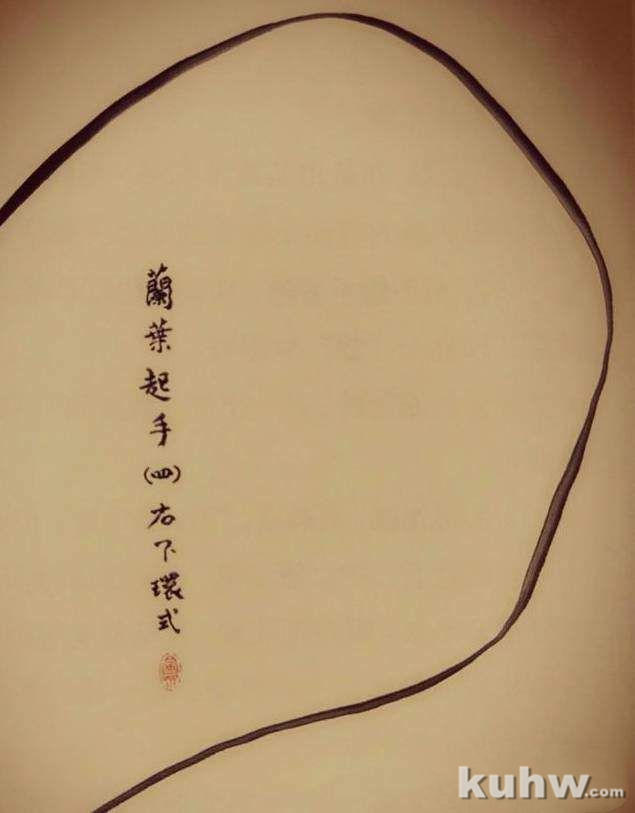 蘭葉起手(四)右下環式
kuhw.com